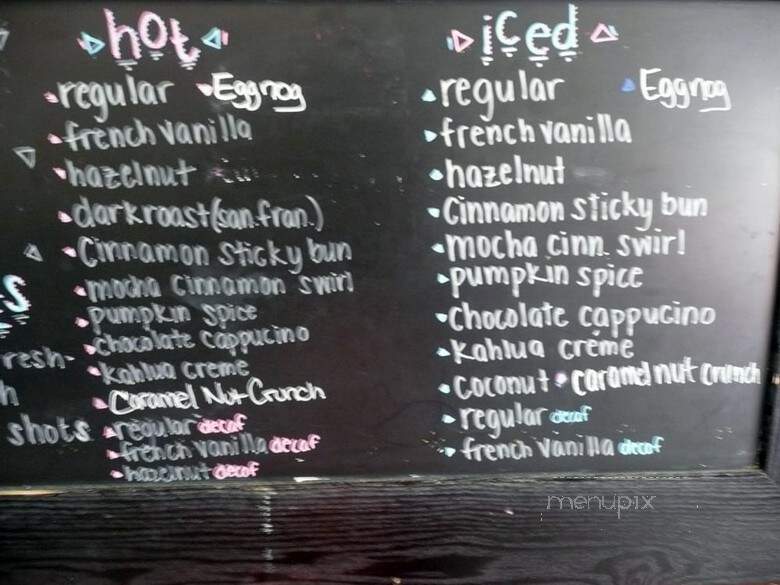 hot
regular Eggnog
french vanilla
hazelnut
dark roast (san.fran.)
Cinnamon sticky bun
mocha cinnamon swirl
pumpkin spice
chocolate cappucino
kahlua creme
Caramel Nut Crunch
regular decaf
french vanilla decaf
hazelnut decaf
iced
regular Eggnog
french vanilla
hazelnut
Cinnamon sticky bun
mocha cinn. swirl
pumpkin spice
chocolate cappucino
kahlua créme
coconut caramel nut crunch
regular decaf
french vanilla decaf
resh-
h
shots
menupix